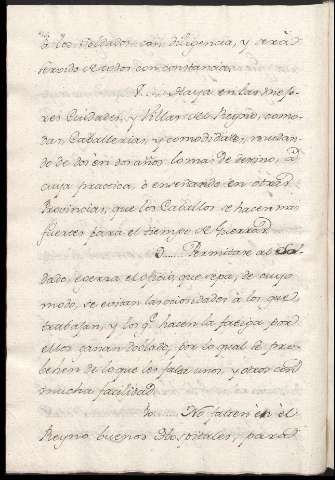 à los Soldados con diligencia, y será
servido de todos con constancia.
8.... Haya en las mejo-
res Ciudades, y Villas del Reyno, como-
das Caballerias, y comodidades, mudan-
do de dos en dos años lo mas de
cuya practica, ò enseñando en otras
Provincias, que los Caballos se hacen mas
fuertes para el tiempo de Guerra.
9.... Permitase al Sol-
dado, exerza el oficio, que sepa, de cuyo
modo, se evitan las ociosidades à los que
trabajan, y los q.e hacen la fatiga por
ellos ganan doblado, por lo qual se pro-
behen de lo que les falta unos, y otros con
mucha facilidad.
10... No falten en el
Reyno buenos Hospitales, para